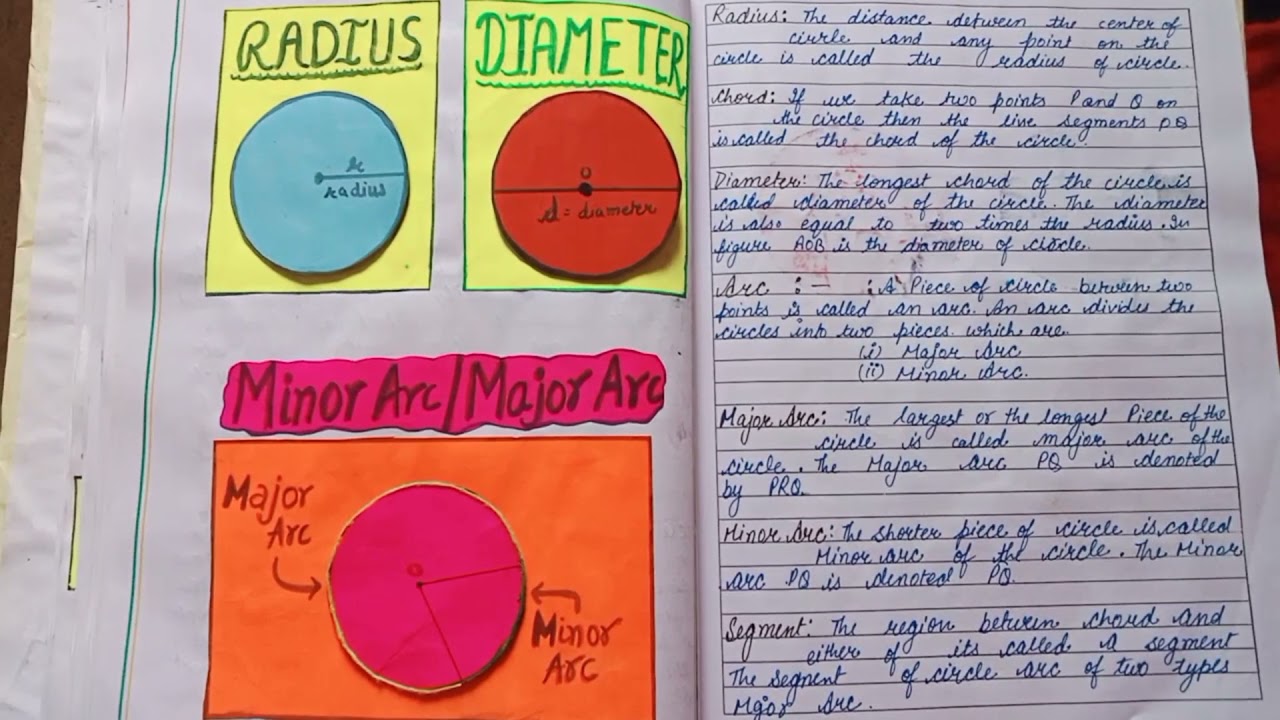 RADIUS
r
radius
DIAMETER
O
d = diameter
Minor Arc/Major Arc
Major
Arc
O
Minor
Arc
Radius: The distance detween the center of
cirrle and any point on the
circle is called the radius of circle.
Chord: If we take two points P and Q on
the circle then the line segments PQ
is called the chord of the circle.
Diameter: The longest chord of the circle is
called diameter of the circle. The diameter
is also equal to two times the radius. In
figure AOB is the diameter of circle.
Arc :- : A Piece of circle between two
points is called an arc. An arc divides the
circles into two pieces which are.
(i) Major Arc
(ii) Minor Arc.
Major Arc: The largest or the longest Piece of the
circle is called major arc of the
circle. The Major arc PQ is denoted
by PRQ.
Minor Arc: The shorter piece of circle is called
Minor arc of the circle. The Minor
arc PQ is denoted PQ.
Segment: The region between chord and
either of its called A segment
The segment of circle arc of two types
Major Arc.